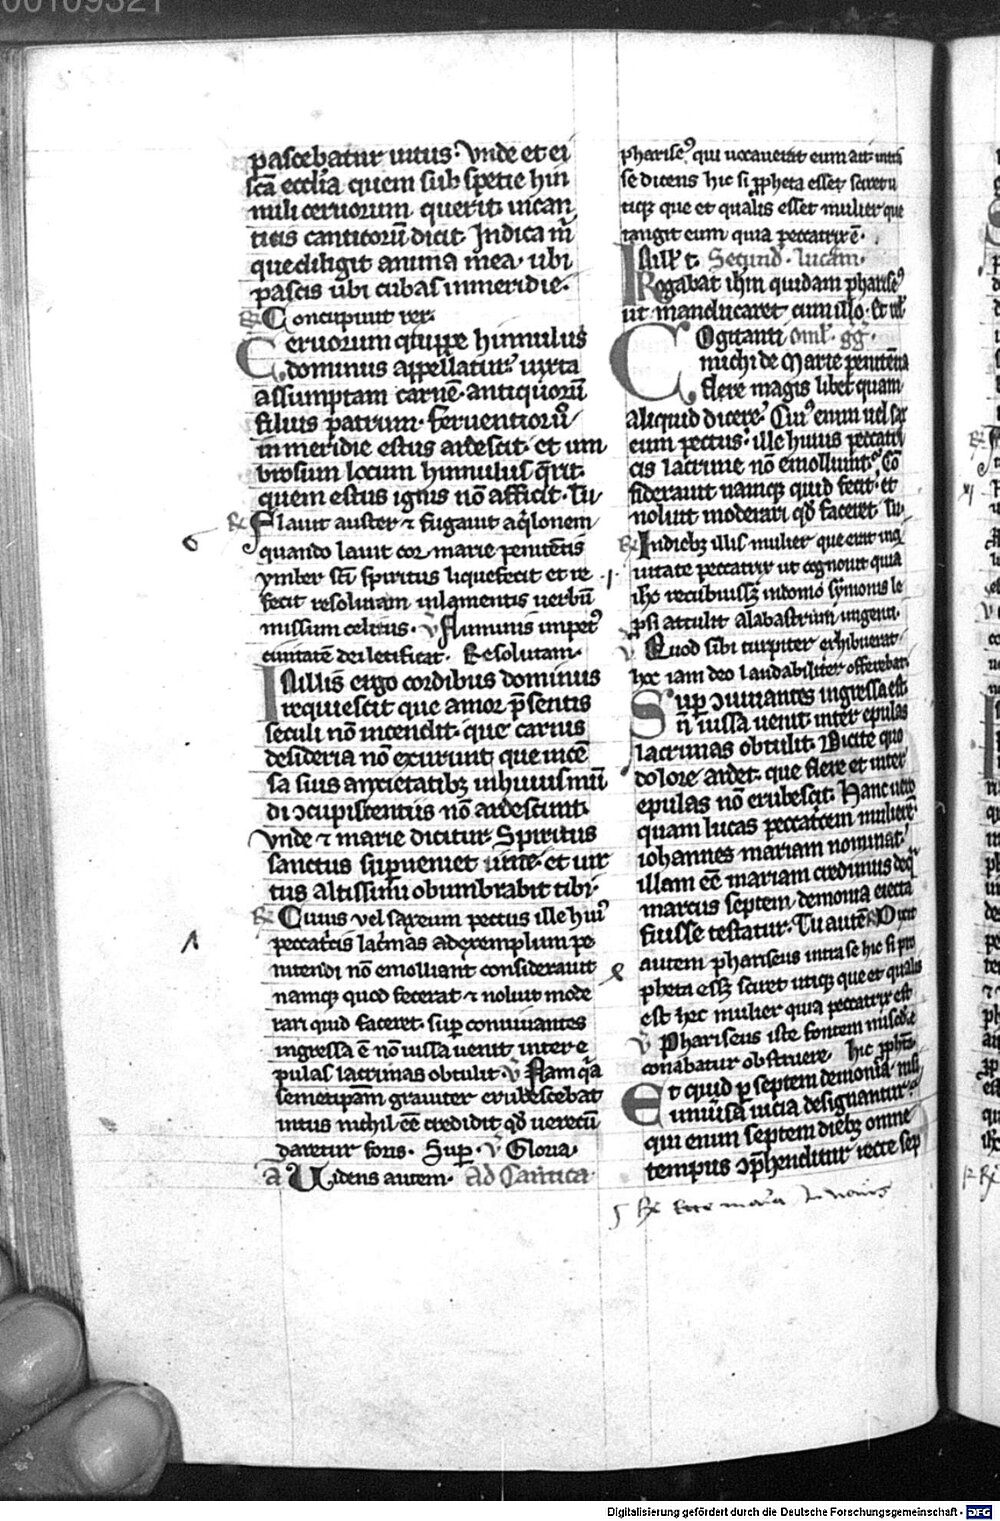 pascebatur intus. Vnde et ei
scā ecclīa quem sub spetie hin
nuli ceruorum querit. in can
ticis canticorū dicit. Indica m̄
que diligit anima mea. ubi
pascis ubi cubas in meridie.
℟ Concupiuit rex.
Ceruorum q̄uppe hinnulus
dominus appellatur. iuxta
assumptam carnē. antiquorū
filius patrum. Feruentiorū
in meridie estus ardescit. et um
brosum locum hinnulus q̄rit.
quem estus ignis nō afficit. In
℟ Flauit auster ⁊ fugauit aq̄lonem
6
quando lauit cor marie penitētis
ymber sc̄i spiritus liquefecit et re
fecit resolutam uilamentis uerbū
missum celitus. ℣ Fluminis impetꝰ
ciuitatē dei letificat. Resolutam.
In illis ergo cordibus dominus
requiescit que amor p̄sentis
seculi nō incendit. que carnis
desideria nō exurunt. que incē
sa suis anxietatibꝫ in huius mū
di ɔcupiscentiis nō ardescunt.
Vnde ⁊ marie dicitur. Spiritus
sanctus sup̄ueniet in te. et uir
tus altissimi obumbrabit tibi.
℟ Cuius vel saxeum pectus ille huiꝰ
peccat̄cis lac̄mas ad exemplum pe
nitendi nō emolliant considerauit
namqꝫ quod fecerat ⁊ noluit mode
rari quid faceret. sup̄ conuiuantes
ingressa ē nō iussa uenit inter e
pulas lacrimas obtulit. ℣ Nam q̄a
semetipsam grauiter erubescebat
intus nichil eē credidit qd̄ uerecū
daretur foris. Sup̄. ℣ Gloria.
a Uidens autem. ad Cantica.
phariseꝰ qui uocauerat eum ait intra
se dicens hic si ꝓpheta esset sciret u
tiqꝫ que et qualis esset mulier que
tangit eum quia peccatrix ē.
In illo t̄. Secund. lucam.
Rogabat ihm quidam phariseꝰ
ut manducaret cum illo. Et rel̄.
COgitanti Oml̄. gḡ.
michi de Marie penitēcia
flere magis libet quam
aliquid dicere. Cuiꝰ enim uel sax
eum pectus. ille huius peccatri
cis lacrime nō emolliunt. Cō
siderauit namqꝫ quid fecit. et
noluit moderari qd̄ faceret. Su
℟ In diebꝫ illis mulier que erat in ci
uitate peccatrix ut cognouit quia
ihc recubuissꝫ in domo symonis le
prosi attulit alabastrum ungenti.
℣ Quod sibi turpiter exhibuerat
hoc iam deo laudabiliter offerebat.
Sup̄ ɔuiuantes ingressa est
n̄ iussa uenit. inter epulas
lacrimas obtulit. Dicite quo
dolore ardet. que flere et inter
epulas nō erubescit. Hanc uero
quam lucas peccat̄cem mulierē.
iohannes mariam nominat.
illam eē mariam credimus de q̄
marcus septem demonia eiecta
fuisse testatur. Tu autē ℟ Dixit
autem phariseus intra se hic si pro
pheta essꝫ sciret utiqꝫ que et qualis
est hec mulier quia peccatrix est
℣ Phariseus iste fontem misc̄die
conabatur obstruere. hic ꝓph̄ta.
Et quid p̄ septem demonia nisi
uniūsa uicia designantur.
qui enim septem diebꝫ omne
tempus ɔp̄henditur recte sep